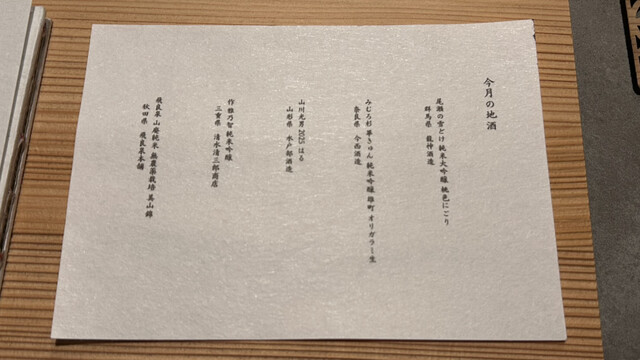 今月の地酒
尾瀬の雪どけ 純米大吟醸 桃色にごり
群馬県 龍神酒造
みむろ杉 華きゅん 純米吟醸 雄町 オリガラミ生
奈良県 今西酒造
山川光男 2025 はる
山形県 水戸部酒造
作 雅乃智 純米吟醸
三重県 清水清三郎商店
飛良泉 山廃純米 無農薬栽培 美山錦
秋田県 飛良泉本舗